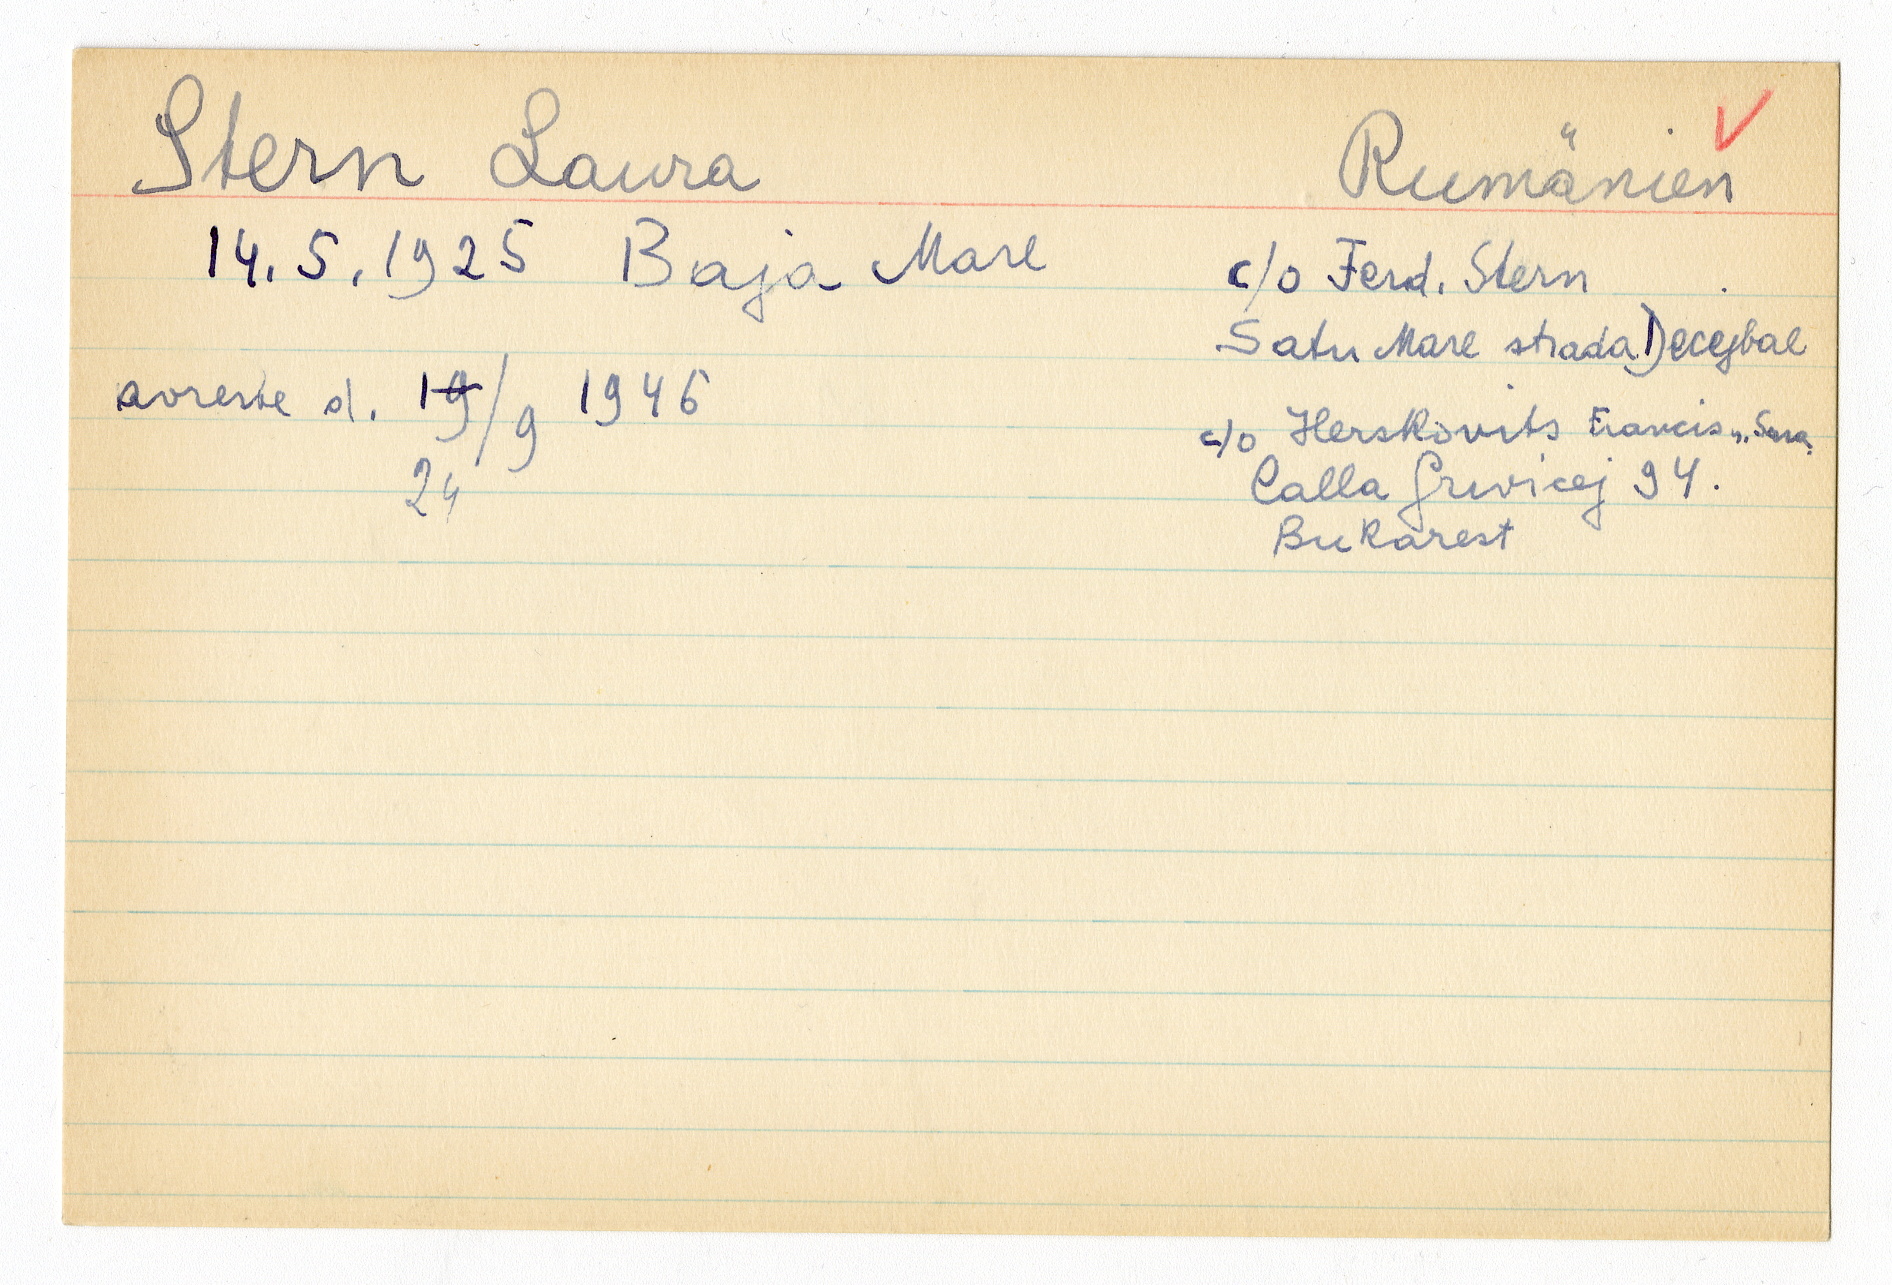 Stern Laura Rumänien
14. 5. 1925 Baja Mare
avreste d. 19/9 1946
24
c/o Ferd. Stern
Satu Mare strada Decejbal
c/o Herskovits Francis
Calla Grivicej 94.
Bukarest